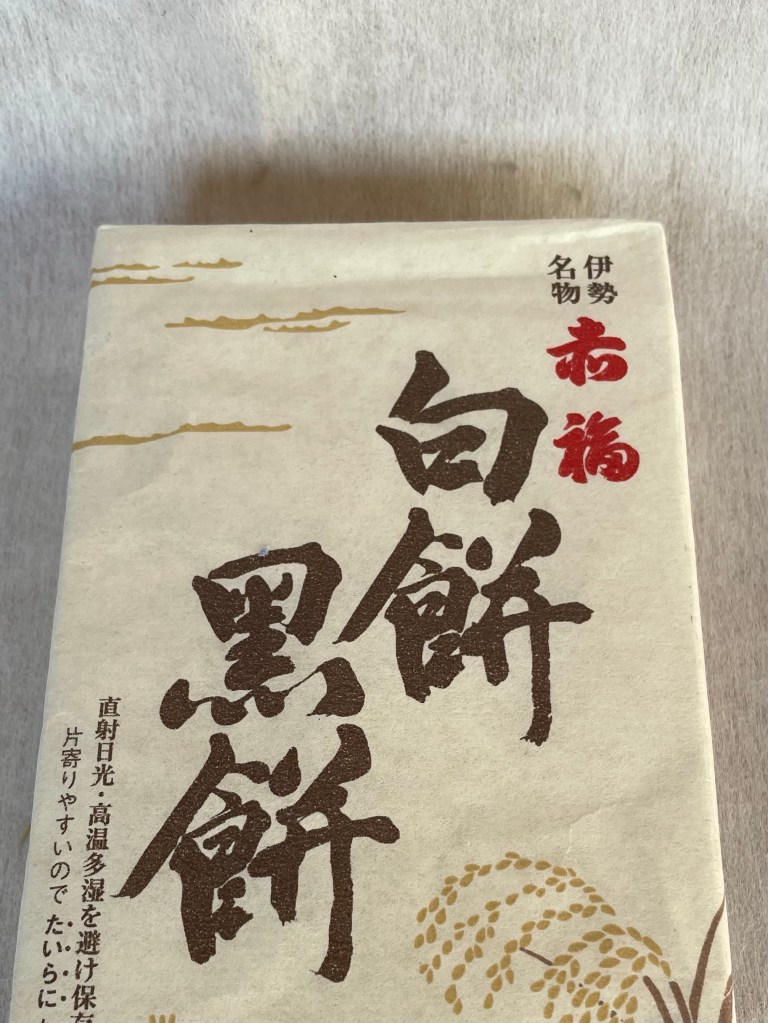 伊勢
名物
赤福
白餅
黑餅
直射日光・高温多湿を避け保存
片寄りやすいので たいらに